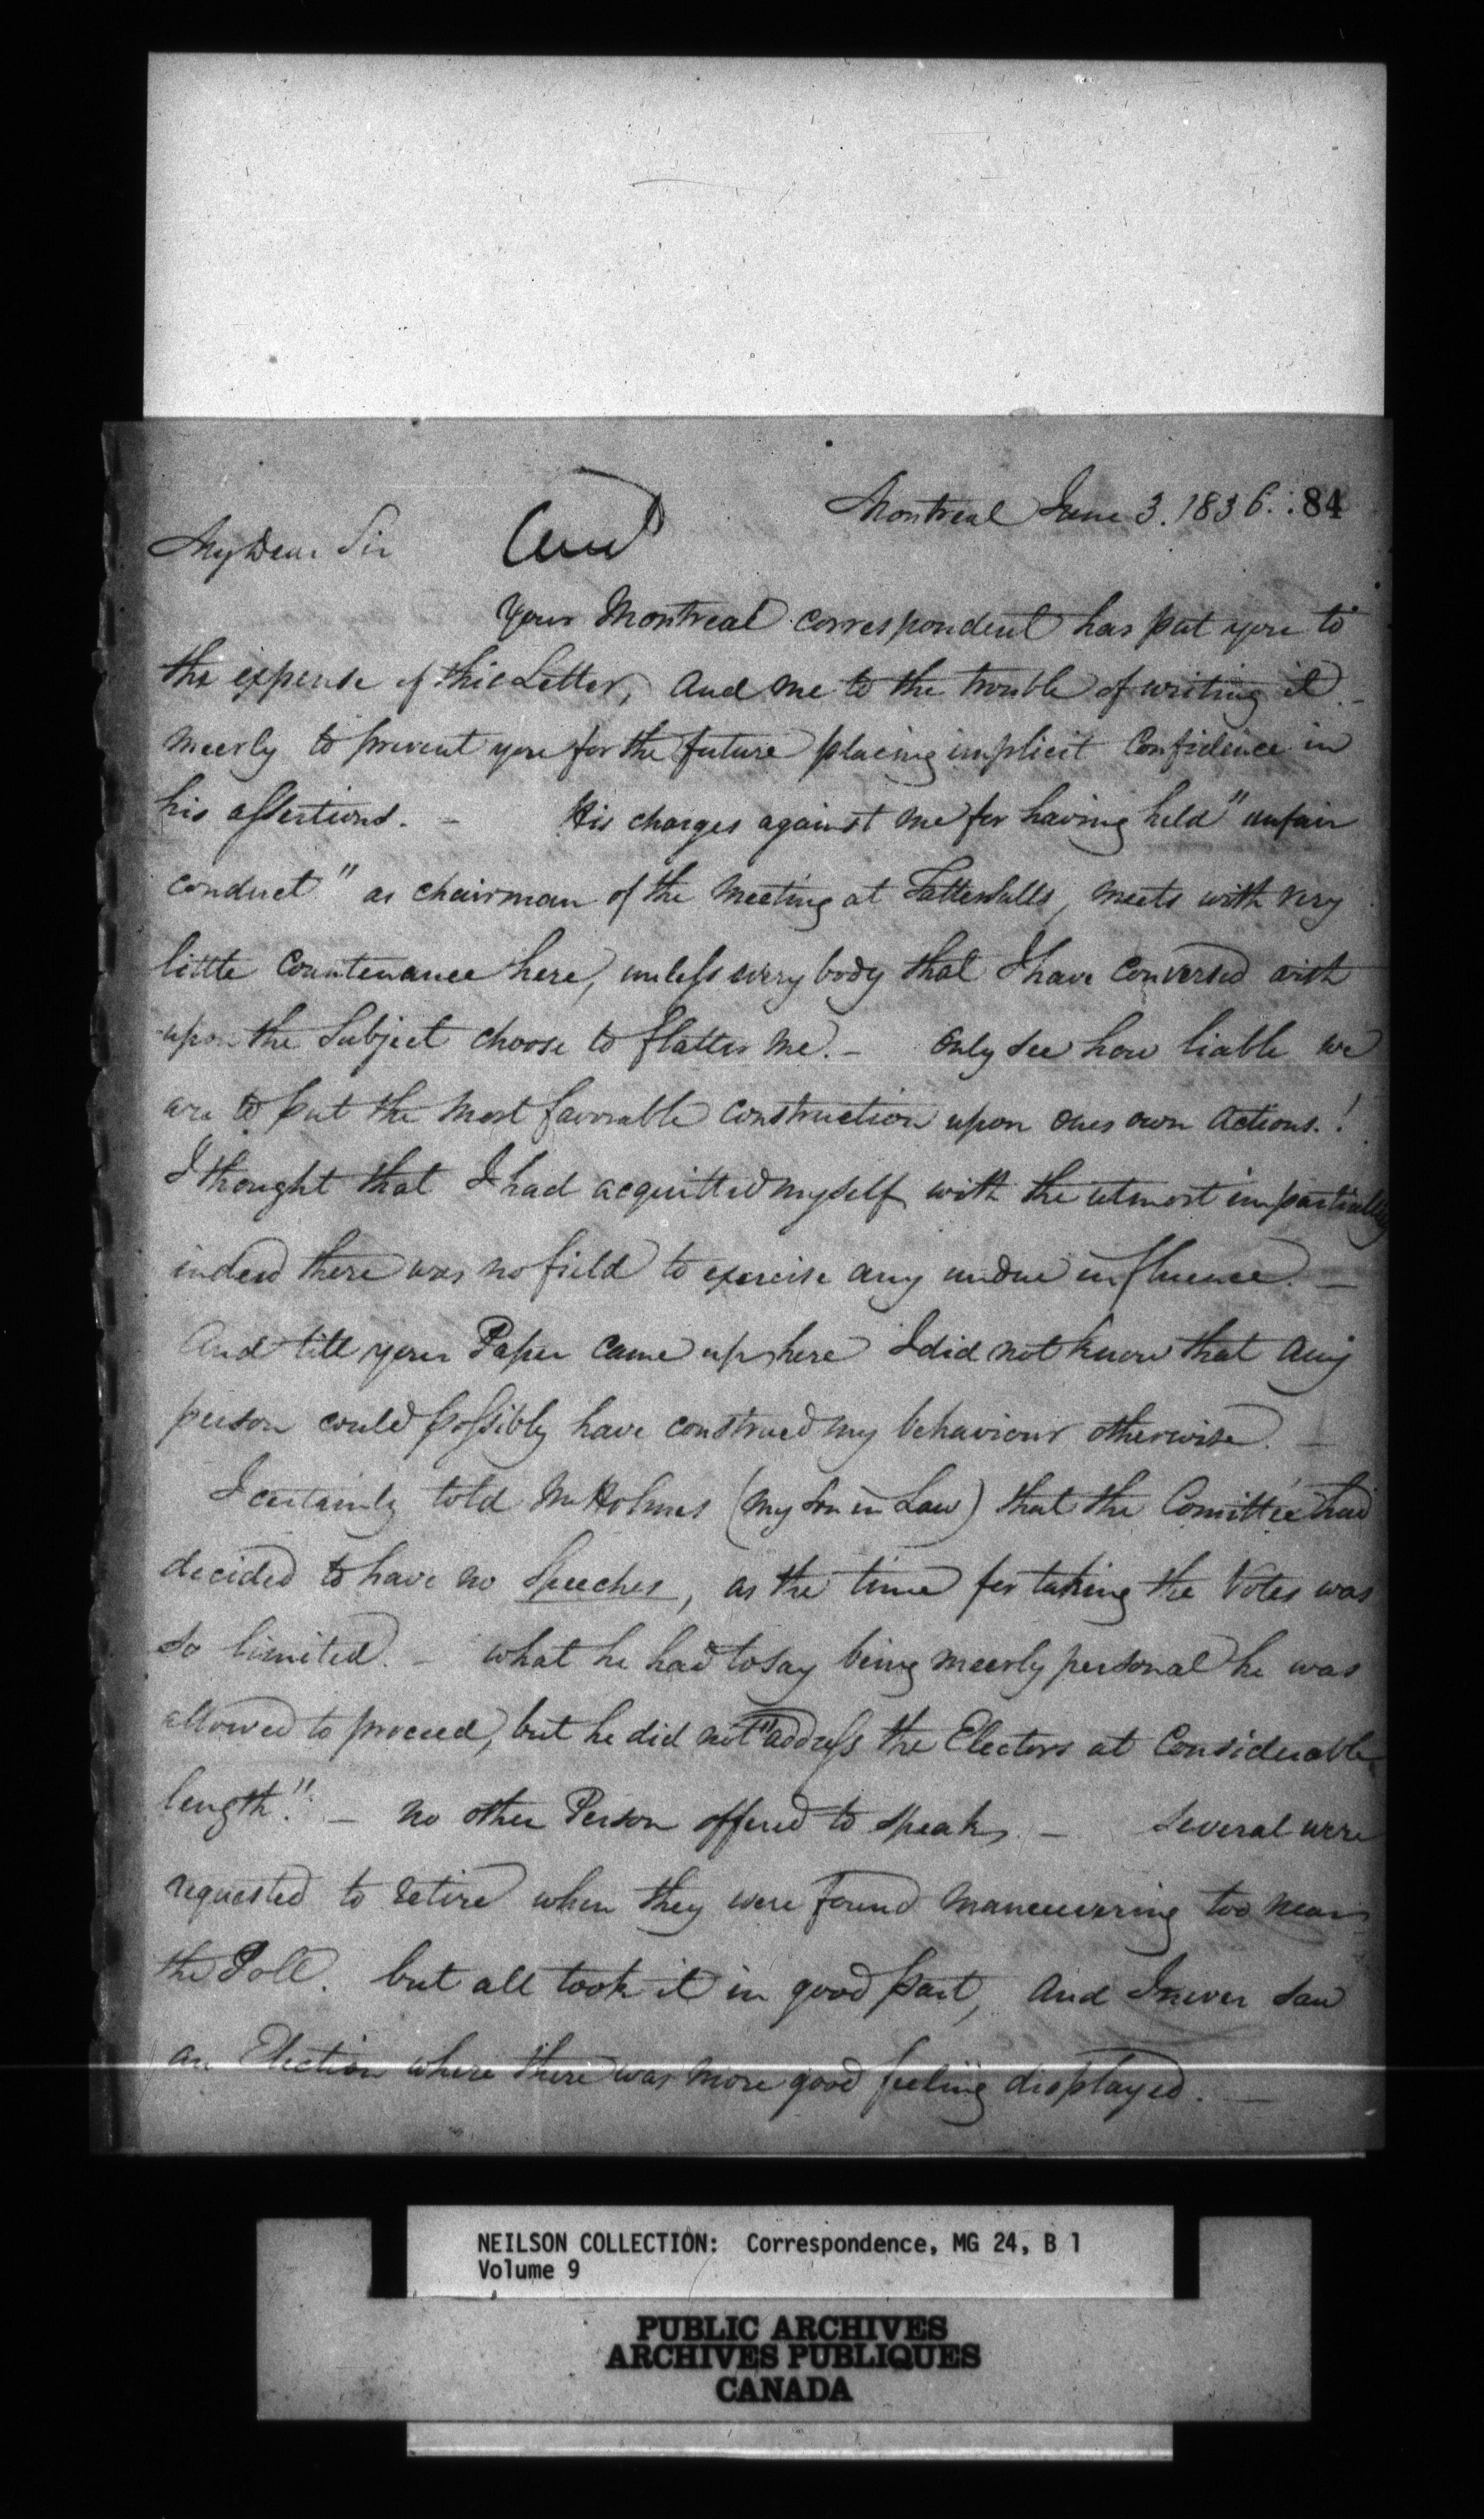 Montreal June 3. 1836. 84
My Dear Sir
Your Montreal correspondent has put you to
the expense of this Letter, and me to the trouble of writing it. –
meerly to prevent you for the future placing implicit Confidence in
his assertions. – His charges against me for having held "unfair
conduct" as chairman of the meeting at Tattersalls, meets with very
little Countenance here, unless every body that I have Conversed with
upon the Subject choose to flatter me. – Only see how liable we
are to put the most favorable construction upon ones own actions. !
I thought that I had acquitted myself with the utmost impartiality
indeed there was no field to exercise any undue influence. –
And till your Paper came up here I did not know that any
person could possibly have construed my behaviour otherwise. –
I certainly told Mr Holmes (my son in Law) that the Comittee had
decided to have no Speeches, as the time for taking the Votes was
so limited. – what he had to say being meerly personal he was
allowed to proceed, but he did not "address the Electors at Considerable
length". – no other Person offered to speak. – Several were
requested to retire when they were found maneuvering too near
the Poll. but all took it in good part, and I never saw
an Election where there was more good feeling displayed. –
NEILSON COLLECTION: Correspondence, MG 24, B 1
Volume 9
PUBLIC ARCHIVES
ARCHIVES PUBLIQUES
CANADA